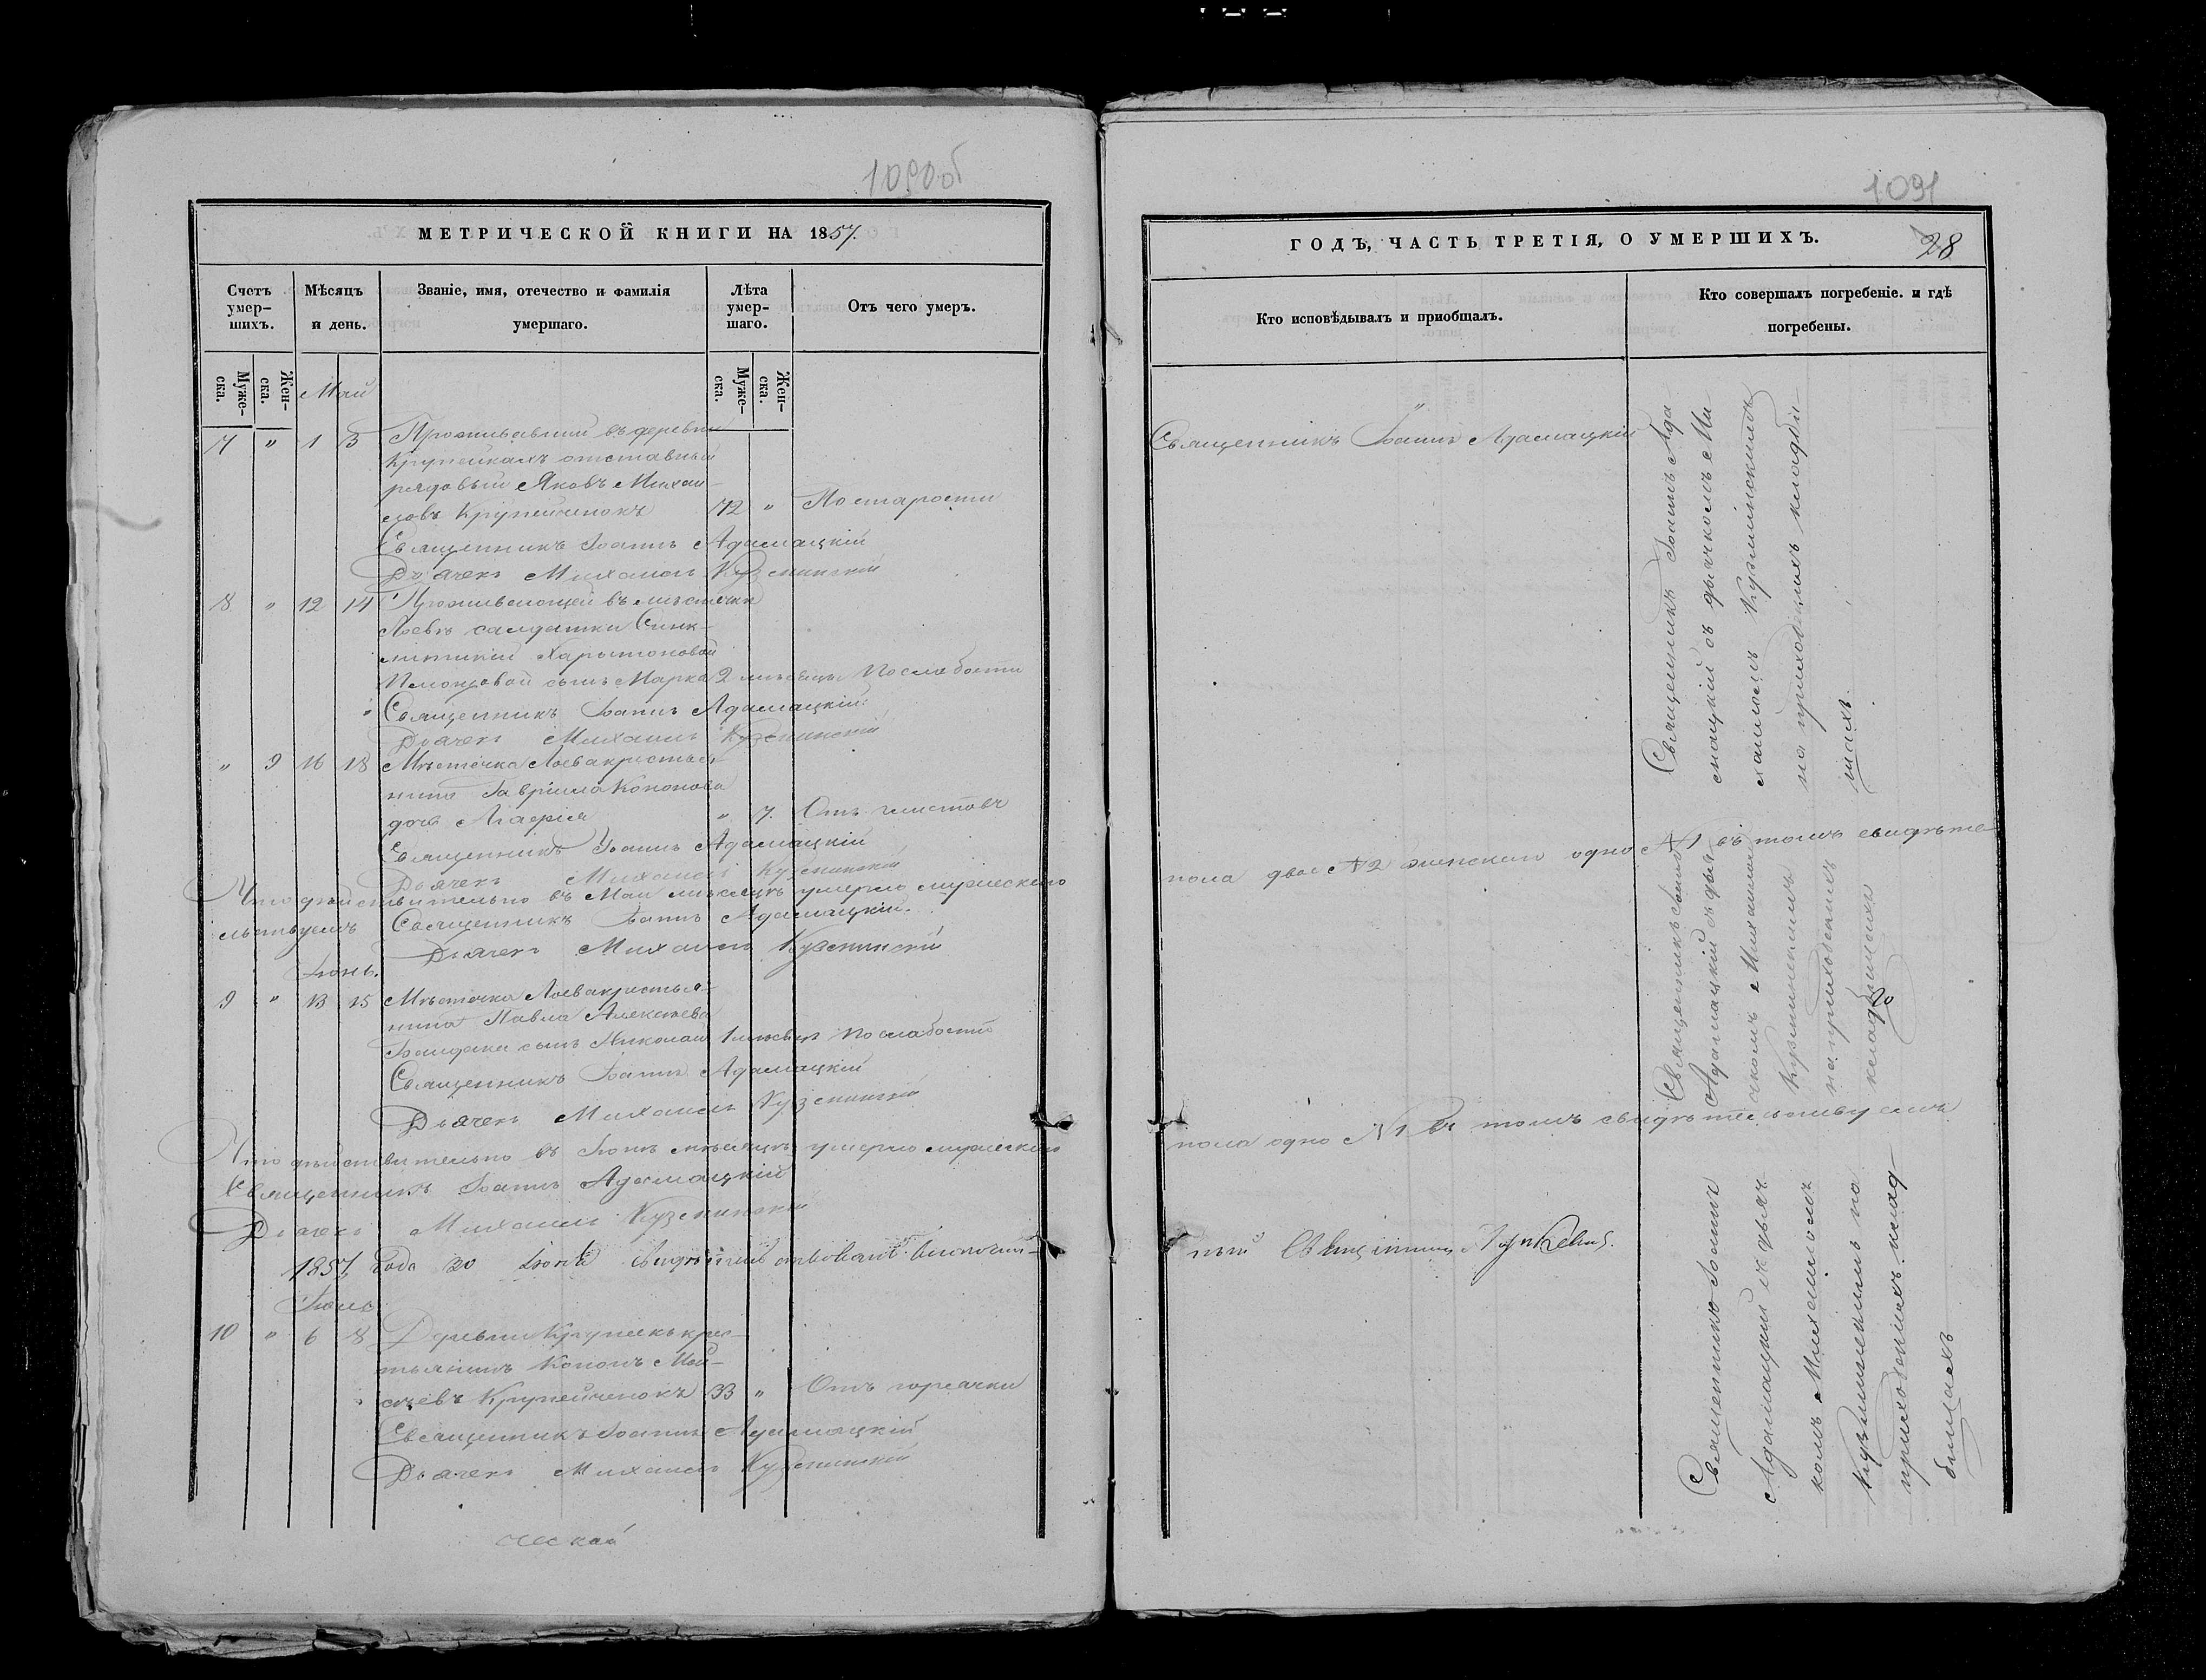 1090об
МЕТРИЧЕСКОЙ КНИГИ НА 1857.
Счетъ умер-шихъ.
Мѣсяцъ и день.
Званіе, имя, отечество и фамилія умершаго.
Лѣта умер-шаго.
Отъ чего умеръ.
Муже-ска.
Жен-ска.
Май
Муже-ска.
Жен-ска.
7 " 1 3 Проживавший въ деревни
Крупейкахъ отставный
рядовый Яковъ Михаи-
ловъ Крупейченокъ 72 " По старости
Священникъ Іоаннъ Адамацкій
Дьячекъ Михаилъ Кузминскій
8 " 12 14 Проживающей въ мѣстечки
Лоевѣ салдатки Синк-
литикіи Харытоновой
сынъ Марко 2 мѣсяцы По слабости
Священникъ Іоаннъ Адамацкій
Дьячекъ Михаилъ Кузминскій
" 9 16 18 Мѣстечка Лоева кристья-
нина Гавріила Кононова
дочь Марія " 7. Отъ глистовъ
Священникъ Іоаннъ Адамацкій
Дьячекъ Михаилъ Кузминскій
Что дѣйствительно въ Маи мѣсяцѣ умерло мужескаго
льствуемъ Священникъ Іоаннъ Адамацкій.
Дьячекъ Михаилъ Кузминскій
Іюнь.
9 " 13 15 Мѣстечка Лоева кристья-
нина Павла Алексѣева
сынъ Николай 1 мѣсяцъ По слабости
Священникъ Іоаннъ Адамацкій
Дьячекъ Михаилъ Кузминскій
Что дѣйствительно въ Іюнѣ мѣсяцѣ умерло мужескаго
Священникъ Іоаннъ Адамацкій
Дьячекъ Михаилъ Кузминскій
1857 года 30 Іюня Свидѣтельствовалъ
Іюль
10 " 6 8 Деревни Крупекъ крис-
тьянинъ Кононъ Мои-
сѣевъ Крупейченокъ 33 " Отъ горячки
Священникъ Іоаннъ Адамацкій
Дьячекъ Михаилъ Кузминскій
ческой
1091
ГОДЪ, ЧАСТЬ ТРЕТІЯ, О УМЕРШИХЪ.
28
Кто исповѣдывалъ и пріобщалъ.
Кто совершалъ погребеніе. и гдѣ погребены.
"
Священникъ Іоаннъ Адамацкій
Священникъ Іоаннъ Ада
мацкій съ дьячкомъ Ми
хаиломъ Кузминскимъ
на приходскихъ кладби-
щахъ.
пола двое №2 женскаго одно №1 въ томъ свидѣте
Священникъ Іоаннъ
Адамацкій съ дья
чкомъ Михаиломъ
Кузминскимъ
на приходскихъ
кладбищахъ
пола одно №1 въ томъ свидѣтельствуемъ
ный Священникъ
Священникъ Іоаннъ
Адамацкий съ дьяч
комъ Михаиломъ
Кузминскимъ на
приходскихъ клад-
бищахъ